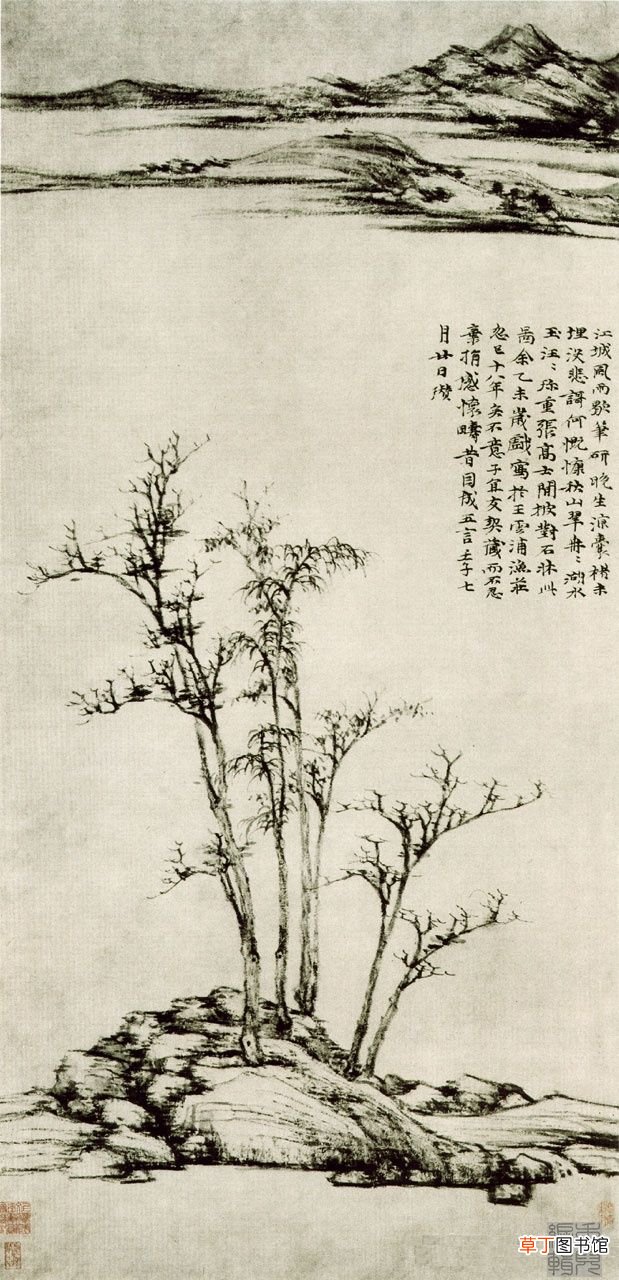 江城風雨歇筆研晚生涼囊楮未
埋没悲謌何慨慷秋山翠冉〻湖水
玉汪〻珎重張高士閒披對石牀此
啚余乙未歲戲寫於王雲浦漁莊
忽已十八年矣不意子宜友契藏而不忍
棄捐感懷疇昔因成五言壬子七
月廿日瓚
草丁图书馆